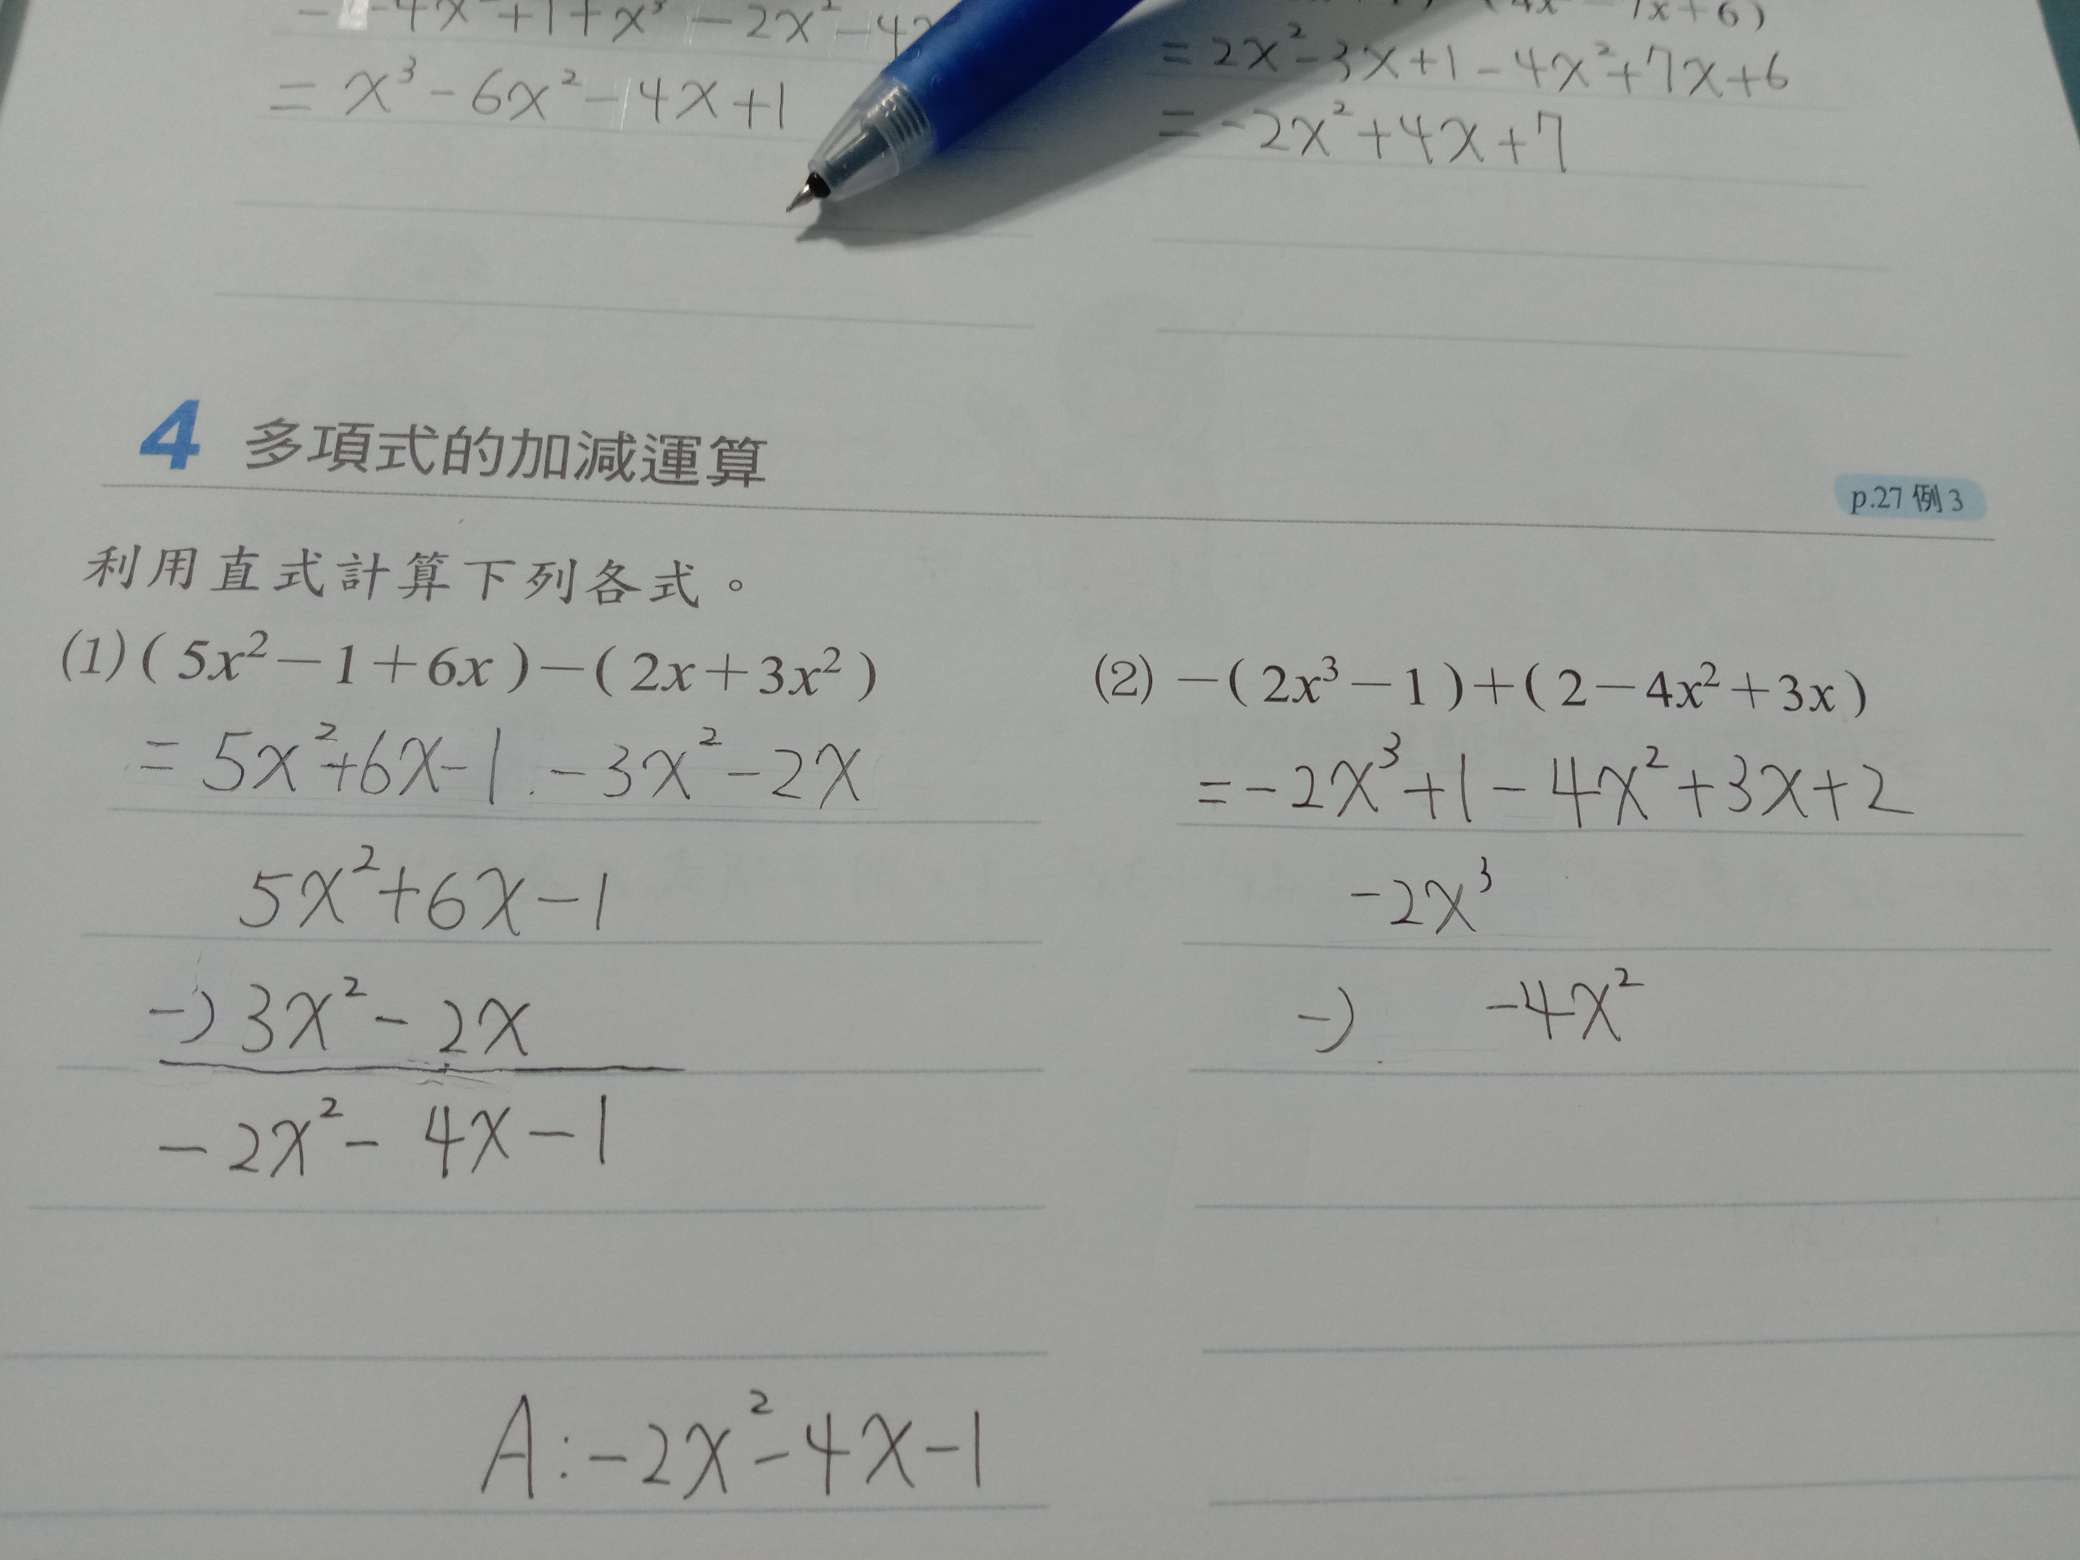 -4x²+1+x³-2x²-4
=x³-6x²-4x+1
-7x+6)
=2x²-3x+1-4x²+7x+6
=-2x²+4x+7
4 多項式的加減運算
p.27 例3
利用直式計算下列各式。
(1)(5x²-1+6x)-(2x+3x²)
=5x²+6x-1-3x²-2x
5x²+6x-1
-)3x²-2x
-2x²-4x-1
A:-2x²-4x-1
(2)-(2x³-1)+(2-4x²+3x)
=-2x³+1-4x²+3x+2
-2x³
-) -4x²